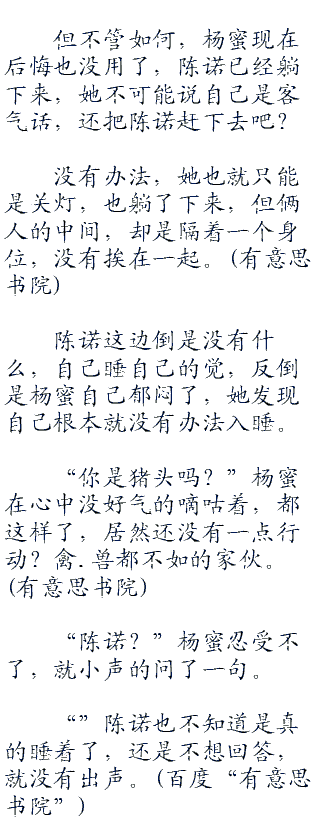 但不管如何，杨蜜现在
后悔也没用了，陈诺已经躺
下来，她不可能说自己是客
气话，还把陈诺赶下去吧？
没有办法，她也就只能
是关灯，也躺了下来，但俩
人的中间，却是隔着一个身
位，没有挨在一起。(有意思
书院)
陈诺这边倒是没有什
么，自己睡自己的觉，反倒
是杨蜜自己郁闷了，她发现
自己根本就没有办法入睡。
“你是猪头吗？”杨蜜
在心中没好气的嘀咕着，都
这样了，居然还没有一点行
动？禽.兽都不如的家伙。
(有意思书院)
“陈诺？”杨蜜忍受不
了，就小声的问了一句。
“”陈诺也不知道是真
的睡着了，还是不想回答，
就没有出声。(百度“有意思
书院”)